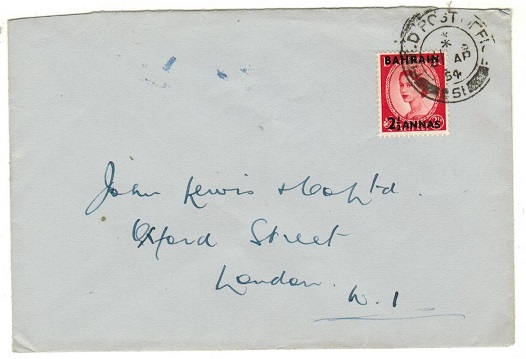 FIELD POST OFFICE
AP
54
BAHRAIN
2½ ANNAS
John Lewis & Co Ltd.
Oxford Street
London.
W.1